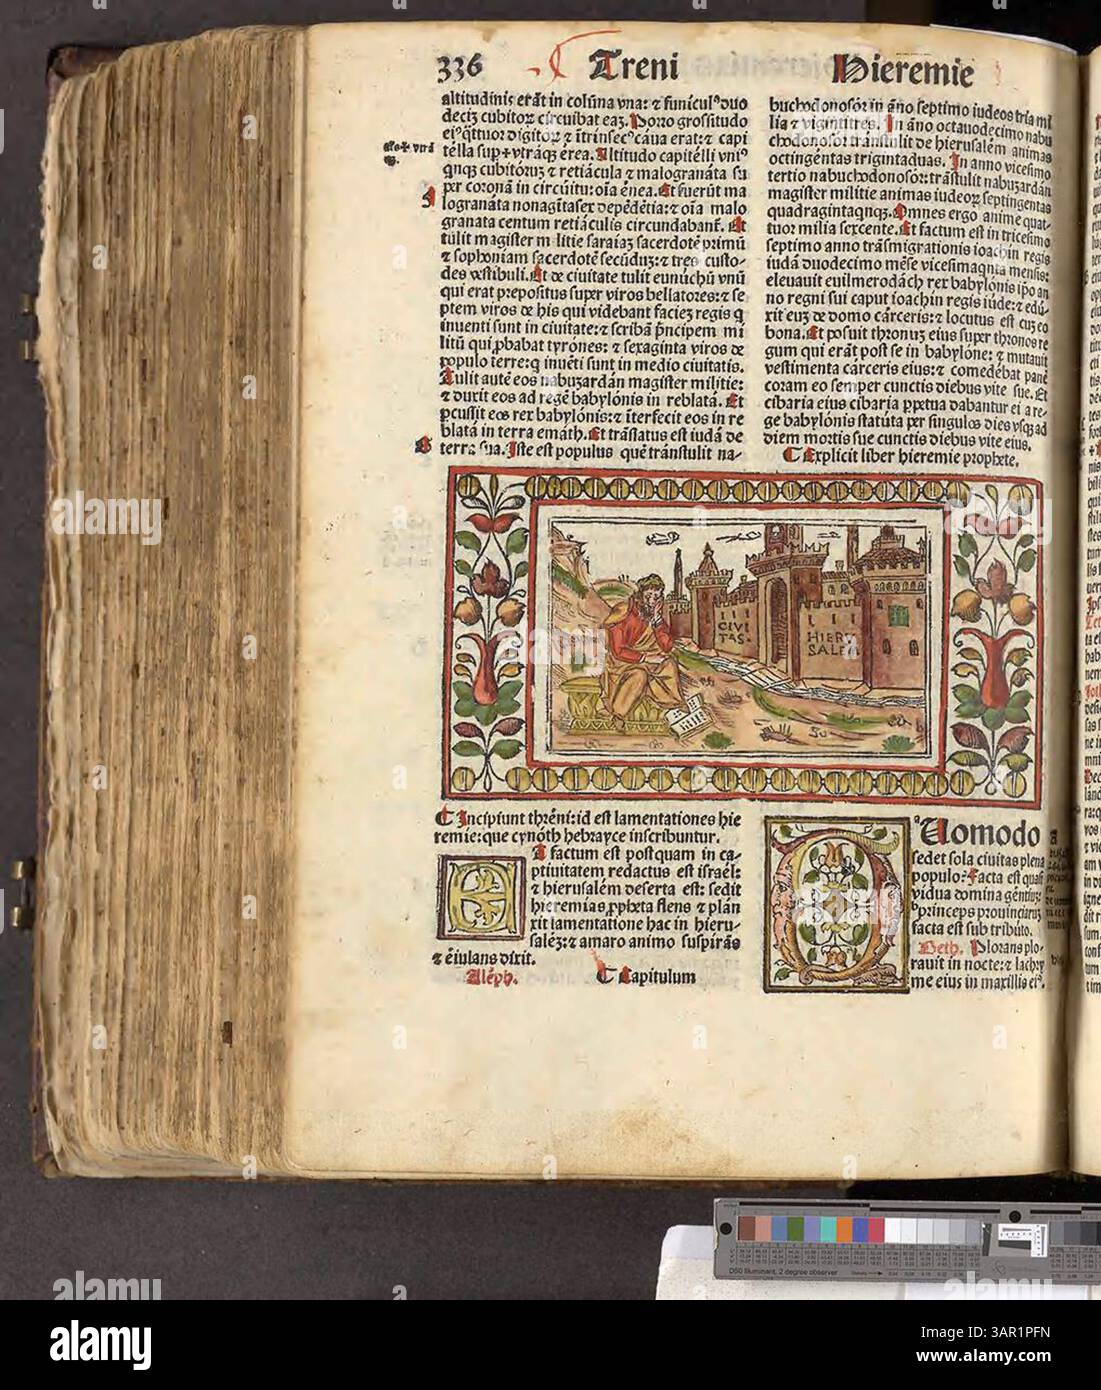 336 Treni Hieremie
altitudinis erāt in colūna vna: ⁊ funiculꝰ duo
decīꝫ cubitoꝝ circuibat eaꝫ. Porro grossitudo
eiꝰ q̄ttuor digitoꝝ ⁊ ītrinsecꝰ caua erat: ⁊ capi
tella sup̄ + vtrāqꝫ erea. Altitudo capitélli vniꝰ
qnqꝫ cubitoruꝫ ⁊ retiácula ⁊ malogranáta su
per coronā in circúitu: oīa ēnea. Et fuerūt ma
logranáta nonagītasex depēdētia: ⁊ oīa malo
granata centum retiáculis circundabant̄. Et
tulit magister militie saraiaꝫ sacerdotē primū
⁊ sophoniam sacerdotē secūduꝫ: ⁊ tres custo-
des vestibuli. Et de ciuitate tulit eunúchū vnū
qui erat prepositus super viros bellatores: ⁊ se
ptem viros de his qui videbant facieꝫ regis q
inuenti sunt in ciuitate: ⁊ scribā p̄ncipem mi
litū qui ꝓbabat tyrónes: ⁊ sexaginta viros de
populo terre: q inuēti sunt in medio ciuitatis.
Tulit autē eos nabuzardán magister militie:
⁊ duxit eos ad regē babylónis in reblatá. Et
ꝑcussit eos rex babylónis: ⁊ īterfecit eos in re
blata in terra emáth. Et trāslatus est iudá de
terra sua. Iste est populus quē tránstulit na-
buchodonosór in āno septimo iudeos tria mi
lia ⁊ vigintitres. In āno octauodecimo nabu
chodonosór trānstulit de hierusalém animas
octingéntas trigintaduas. In anno vicesimo
tertio nabuchodonosór: trāstulit nabuzardán
magister militie animas iudeoꝝ septingentas
quadragintaqnqꝫ. Omnes ergo anime quat-
tuor milia sexcente. Et factum est in tricesimo
septimo anno trāsmigrationis ioachin regis
iudá duodecimo mēse vicesimaqnta mensis:
eleuauit euilmerodách rex babylónis ipo an
no regni sui caput ioachin regis iude: ⁊ edú-
xit euꝫ de domo cárceris: ⁊ locutus est cuꝫ eo
bona. Et posuit thronuꝫ eius super thronos re
gum qui erāt post se in babylóne: ⁊ mutauit
vestimenta cárceris eius: ⁊ comedébat panē
coram eo semper cunctis diebus vite sue. Et
cibaria eius cibaria ꝑpetua dabantur ei a re-
ge babylónis statúta per singulos dies vsqꝫ ad
diem mortis sue cunctis diebus vite eius.
Explicit liber hieremie prophete.
CIVI
TAS.
HIERV
SALEM
Incipiunt thréni: id est lamentationes hie
remie: que cynóth hebrayce inscribuntur.
ET factum est postquam in ca-
ptiuitatem redactus est israél:
⁊ hierusalém deserta est: sedit
hieremias ꝓpheta flens ⁊ plan
xit lamentatione hac in hieru-
saléꝫ: ⁊ amaro animo suspirās
⁊ éiulans dixit.
Aléph. Capitulum
QUomodo
sedet sola ciuitas plena
populo? Facta est quasi
vidua domina gētiuꝫ:
princeps prouinciaruꝫ
facta est sub tributo.
Beth. Plorans plo-
rauit in nocte: ⁊ lachry
me eius in maxillis eiꝰ.
D50 Illuminant, 2 degree observer
alamy
Image ID: 3AR1PFN
www.alamy.com